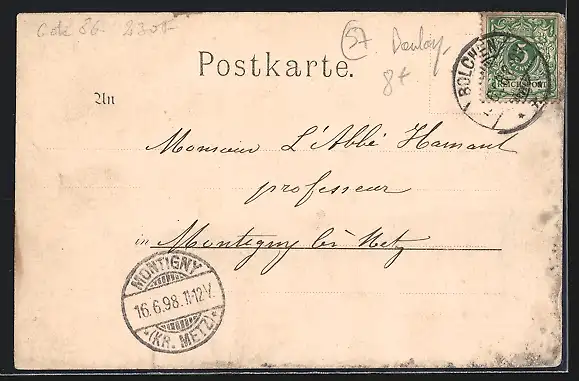 57
8+
Postkarte.
5
REICHSPOST
BOLCHEN
An
Monsieur L'Abbé Hamant
professeur
in Montigny lès Metz
MONTIGNY
16.6.98.11-12V.
*(KR. METZ)*